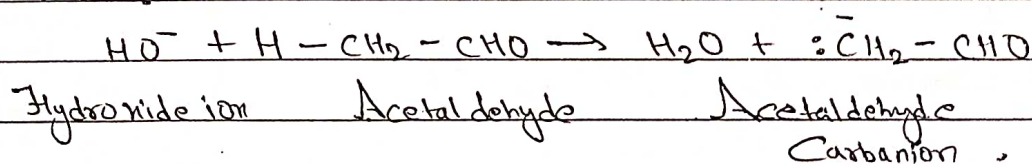 HO⁻ + H – CH₂ – CHO → H₂O + :C̄H₂ – CHO
Hydroxide ion Acetaldehyde Acetaldehyde
Carbanion,